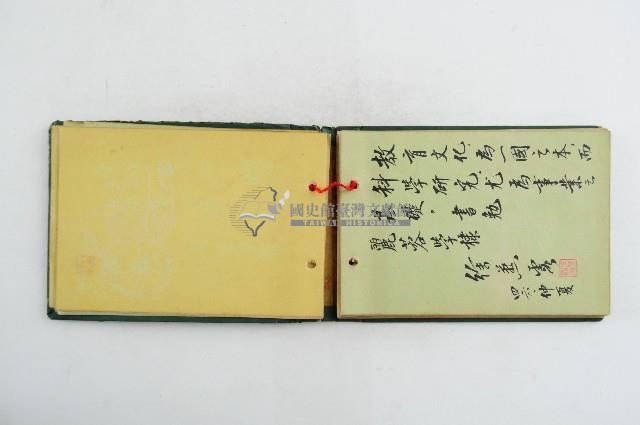 教育文化，為一國之本，而
科學研究，尤為事業之
基礎。書勉
麗蓉學棣
四六、仲夏
國史館臺灣文獻館
TAIWAN HISTORICA